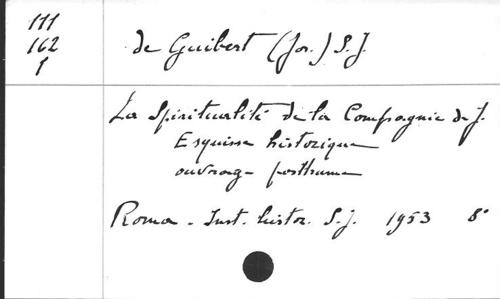 111
162
1
de Guibert (Jos.) S.J.
La Spiritualité de la Compagnie de J.
Esquisse historique
ouvrage posthume
Roma - Inst. histor. S.J. 1953 8°